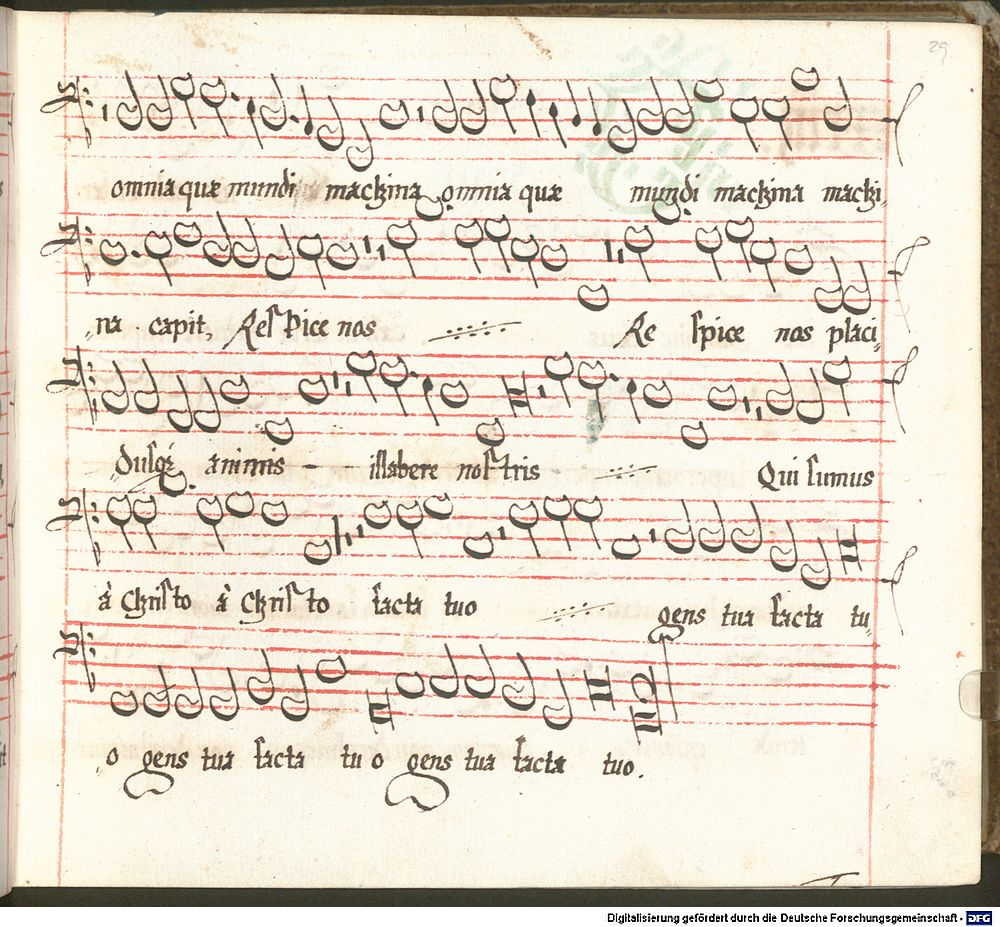 29
omnia quæ mundi machina omnia quæ mundi machina machi,,
,,na capit, Respice nos Re spice nos placi,,
,,dusq; animis illabere nostris Qui sumus
à Christo à Christo facta tuo gens tua facta tu,,
,,o gens tua facta tu o gens tua facta tuo.
Digitalisierung gefördert durch die Deutsche Forschungsgemeinschaft - DFG